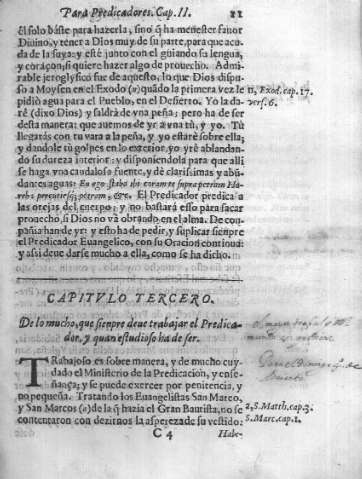 Para Predicadores. Cap. II. 11
èl solo baste para hazerla, sino q̃ ha menester fauor
Diuino, y tener a Dios muy de su parte, para que acu-
da de la suya: y estè junto con el guiando su lengua,
y coraçon, si quiere hazer algo de prouecho. Admi-
rable jeroglyfico fue de aquesto, lo que Dios dispu-
so a Moysen en el Exodo (n) quãdo la primera vez le
pidiò agua para el Pueblo, en el Desierto. Yo la da-
rè (dixo Dios) y saldrà de vna peña; pero ha de ser
desta manera: que auemos de yr a vna tù, y yo. Tù
llegaràs con tu vara a la peña, y yo estarè sobre ella;
y dandole tù golpes en lo exterior, yo yrè ablandan-
do su dureza interior: y disponiendola para que alli
se haga vna caudalosa fuente, y dè clarissimas y abũ-
dantes aguas: En ego stabo ibi coram te supra petram Ho-
reb: percutiesq; petram, &c. El Predicador predica a
las orejas del cuerpo; y no bastarà esso para sacar
prouecho, si Dios no và obrando en el alma. De com-
pañia han de yr: y esto ha de pedir, y suplicar siempre
el Predicador Euangelico, con su Oracion continua:
y assi deue darse mucho a ella, como se ha dicho.
n, Exod. cap. 17.
vers. 6.
CAPITVLO TERCERO.
De lo mucho, que siempre deue trabajar el Predica-
dor, y quan estudioso ha de ser.
TRabajoso en sobre manera, y de mucho cuy-
dado el Ministerio de la Predicacion, y ense-
ñança; y se puede exercer por penitencia, y
no pequeña. Tratando los Euangelistas San Mateo,
y San Marcos (a) de la q̃ hazia el Gran Bautista, no se
contentaron con dezirnos la aspereza de su vestido:
a, S. Matth. cap. 3.
S. Marc. cap. 1.
C 4 Habe-